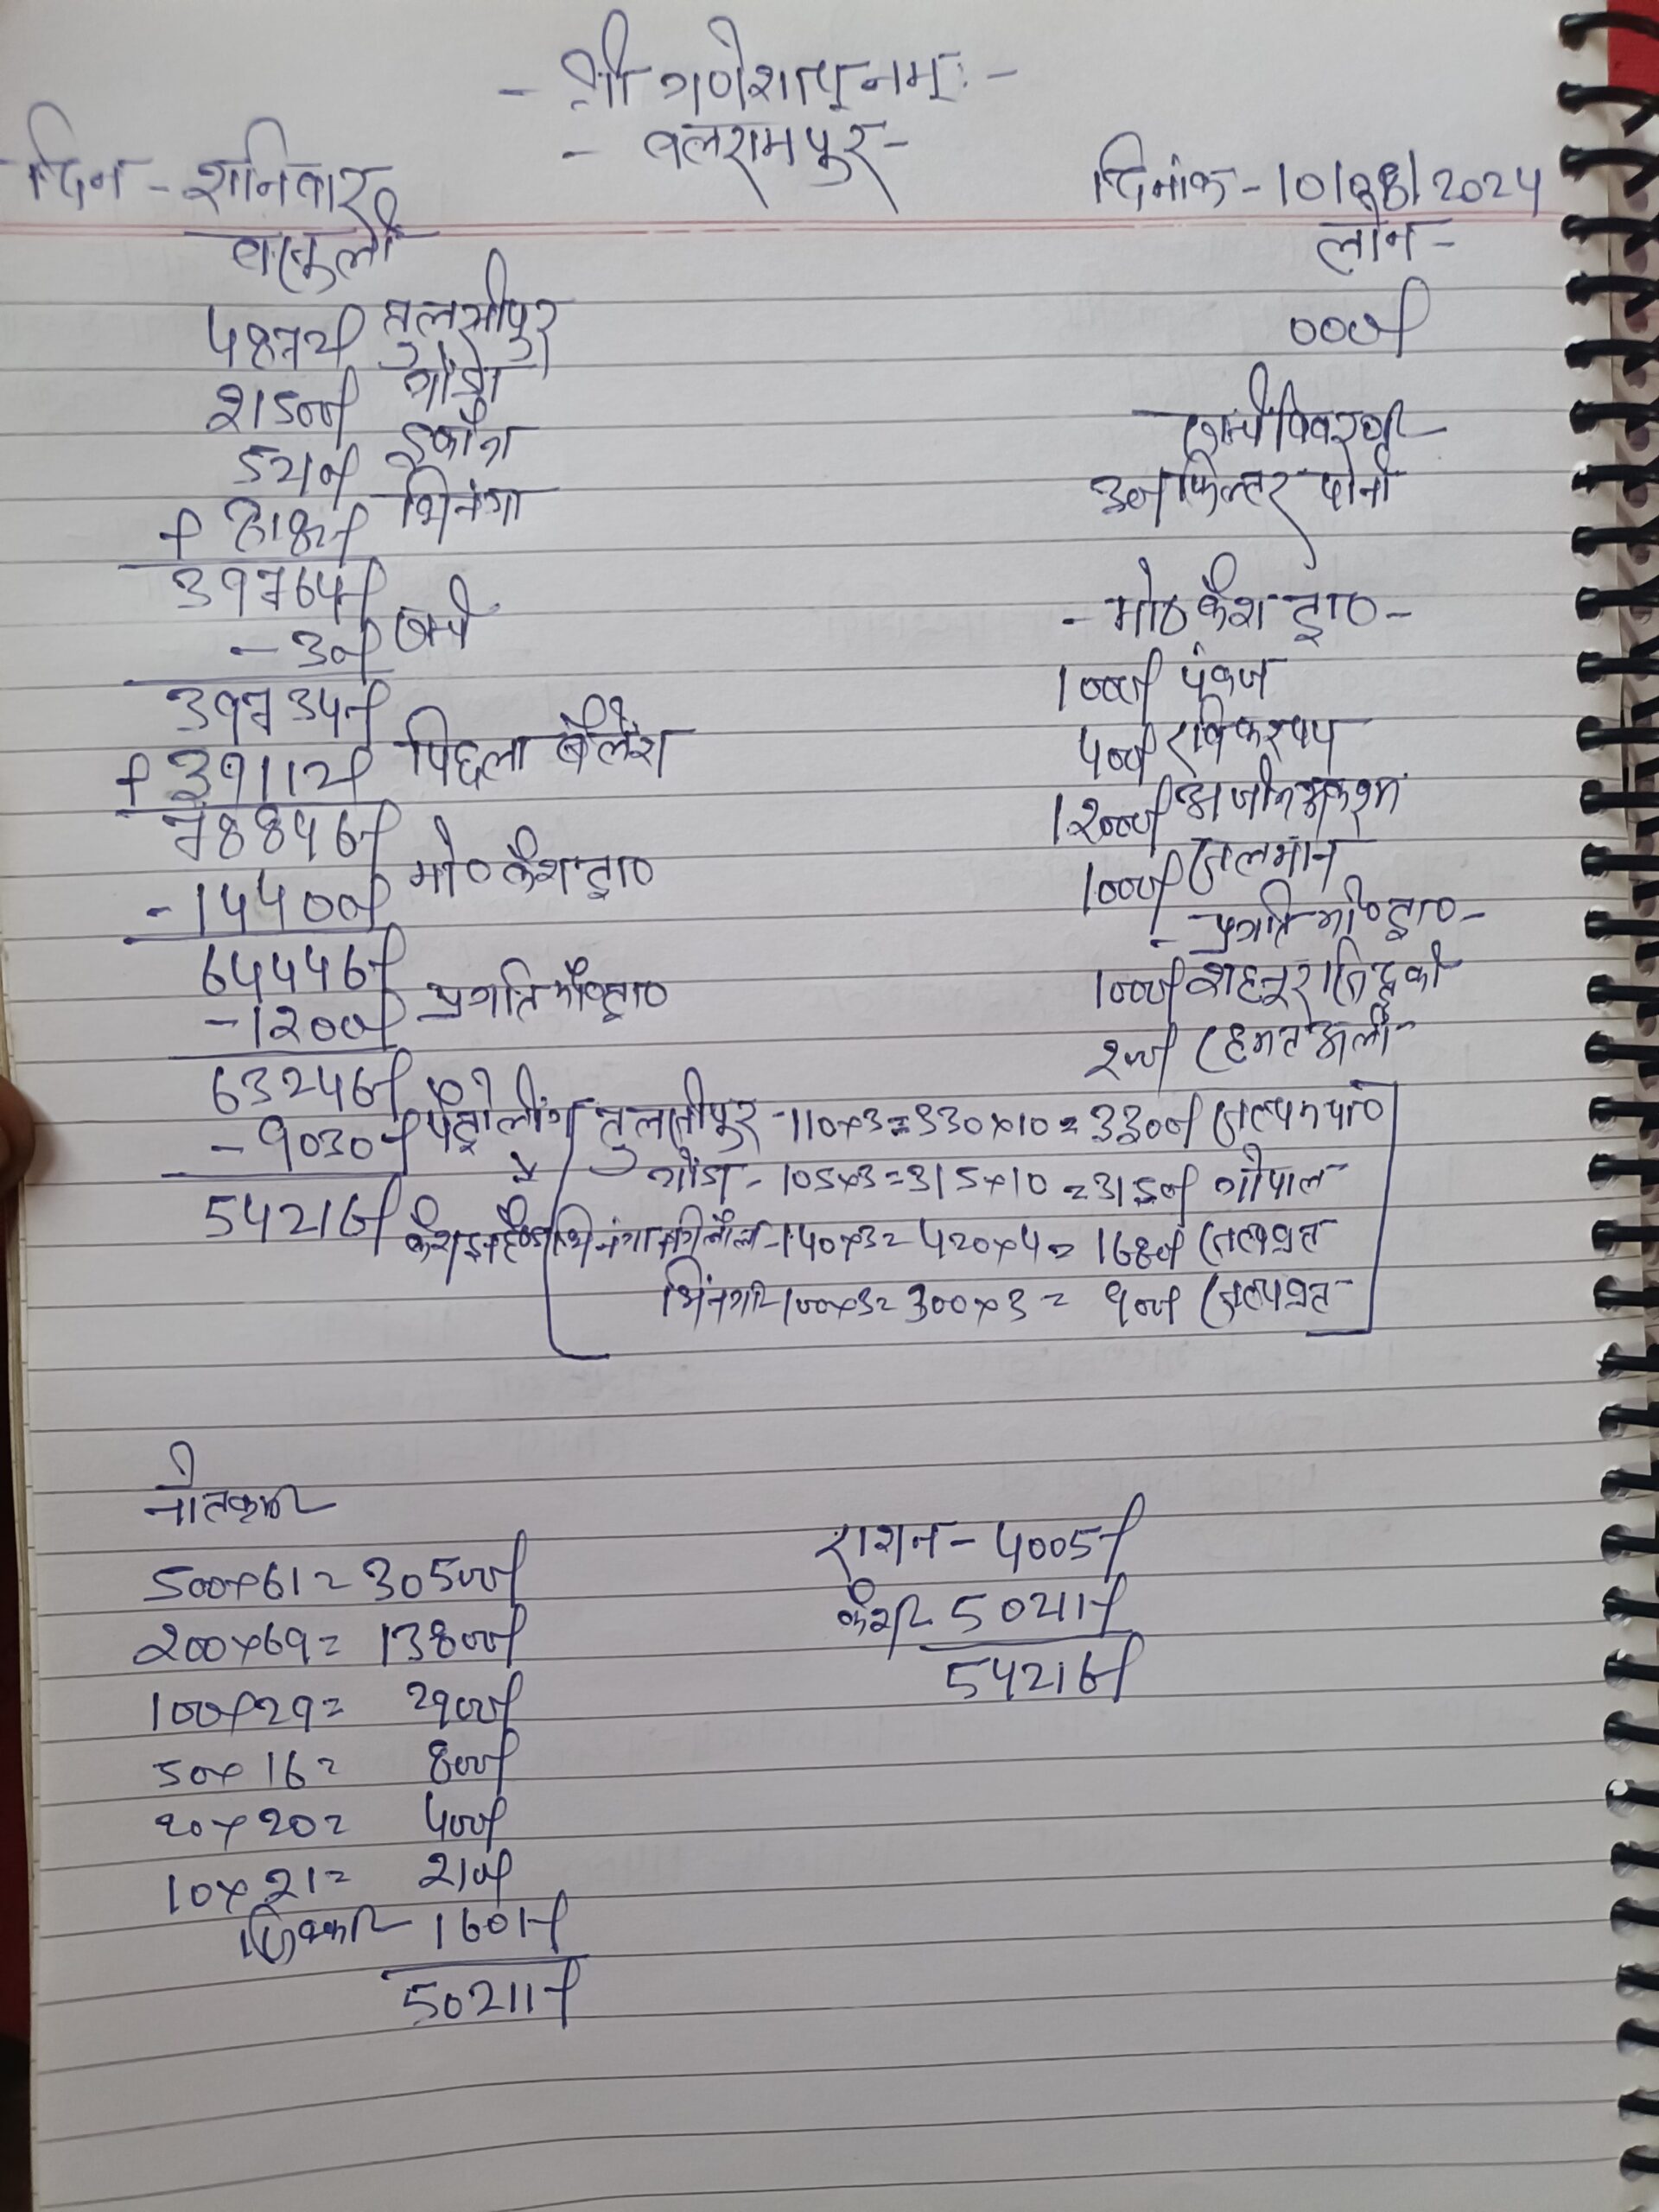 - श्री गणेशाय नमः -
- बलरामपुर -
दिन - शनिवार
दिनांक - 10/08/2024
वसूली
लोन -
4872/ तुलसीपुर
000/
21500/ गोंडा
5210/ इकौना
खर्च विवरण
30/ फिल्टर पानी
+ 8182/ भिनगा
39764/
- 30/ खर्च
39734/
+ 39112/ पिछला बैलेंस
78846/
- 14400/ मो० कैश ट्रा०
64446/
- 1200/ प्रगति मो० ट्रा०
63246/
- 9030/ पेट्रोलींग
54216/ कैश इन हैण्ड
- मो० कैश ट्रा० -
1000/ पंकज
400/ रवि कश्यप
12000/
1000/ सलमान
- प्रगति मो० ट्रा० -
1000/
200/ रहमत अली
तुलसीपुर - 110×3=330×10=3300/
गोंडा - 105×3=315×10=3150/ गोपाल
भिनगा - 140×3=420×4=1680/ सत्यव्रत
भिनगा - 100×3=300×3= 900/ सत्यव्रत
500×61= 30500/
200×69= 13800/
100×29= 2900/
50×16= 800/
20×20= 400/
10×21= 210/
सिक्का - 1601/
50211/
राशन - 4005/
कैश - 50211/
54216/